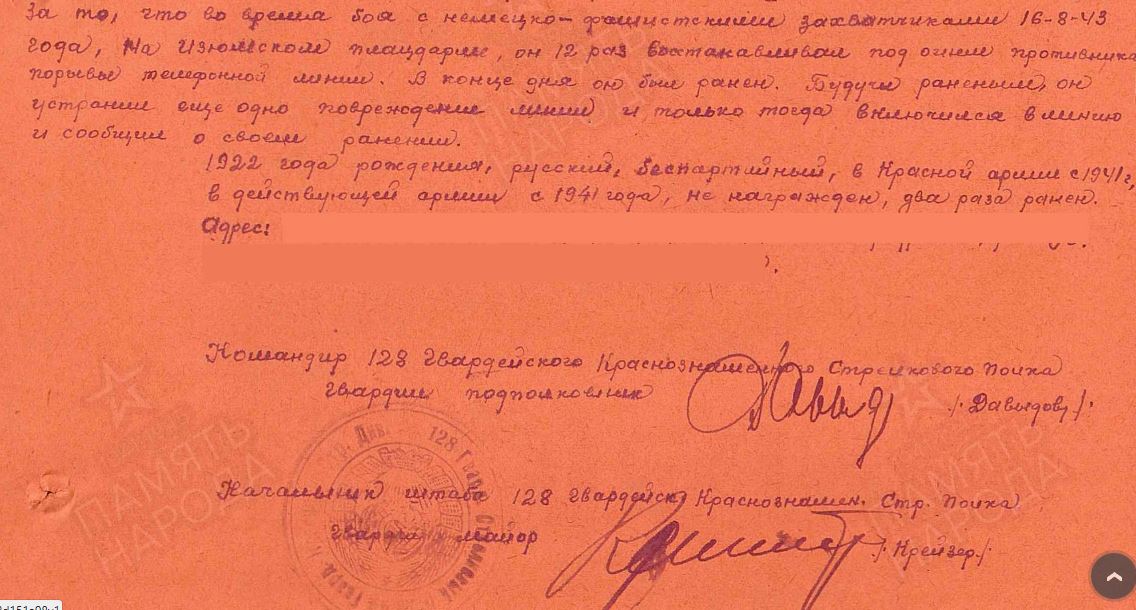 За то, что во время боя с немецко-фашистскими захватчиками 16-8-43
года, на Изюмском плацдарме, он 12 раз восстанавливал под огнем противника
порывы телефонной линии. В конце дня он был ранен. Будучи раненым, он
устранил еще одно повреждение линии и только тогда включился в линию
и сообщил о своем ранении.
1922 года рождения, русский, беспартийный, в Красной армии с 1941 г,
в действующей армии с 1941 года, не награжден, два раза ранен.
Адрес:
Командир 128 Гвардейского Краснознаменного Стрелкового Полка
Гвардии подполковник /Давыдов/.
Начальник штаба 128 Гвардейск Краснознамен. Стр. Полка
Гвардии майор /Крейзер/.
128 Гвард
ПАМЯТЬ
НАРОДА
ПАМЯТЬ
НАРОДА